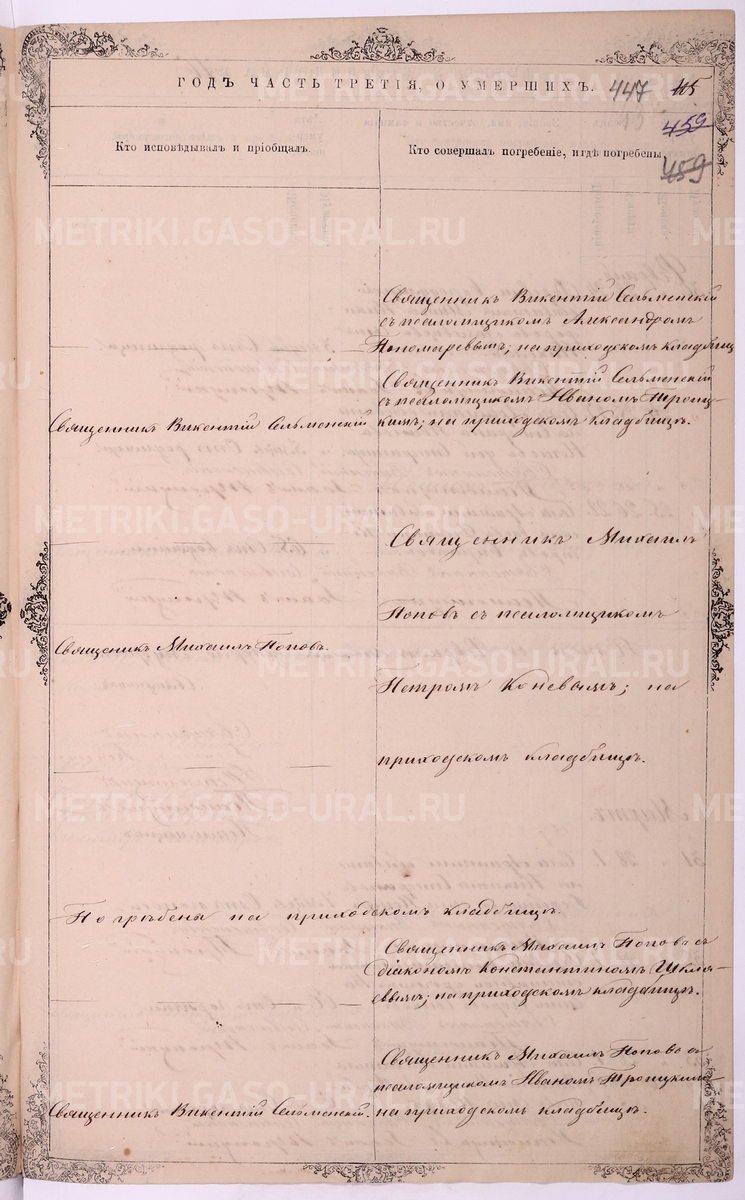 ГОДЪ ЧАСТЬ ТРЕТІЯ, О УМЕРШИХЪ. 447
459
459
Кто исповѣдывалъ и пріобщалъ.
Кто совершалъ погребеніе, и гдѣ погребены.
Священникъ Викентій Сельменскій
съ псаломщикомъ Александромъ
Пономаревымъ; на приходскомъ кладбищѣ
Священникъ Викентій Сельменскій
съ псаломщикомъ Иваномъ Троиц-
Священникъ Викентій Сельменскій
кимъ; на приходскомъ кладбищѣ.
Священникъ Михаилъ
Поповъ съ псаломщикомъ
Священикъ Михаилъ Поповъ.
Петромъ Коневымъ; на
приходскомъ кладбищѣ.
Погребена на приходскомъ кладбищѣ.
Священникъ Михаилъ Поповъ съ
діакономъ Константиномъ Шкля-
евымъ; на приходскомъ кладбищѣ.
Священникъ Михаилъ Поповъ съ
псаломщикомъ Иваномъ Троицкимъ
Священникъ Викентій Сельменскій.
на приходскомъ кладбищѣ.
METRIKI.GASO-URAL.RU